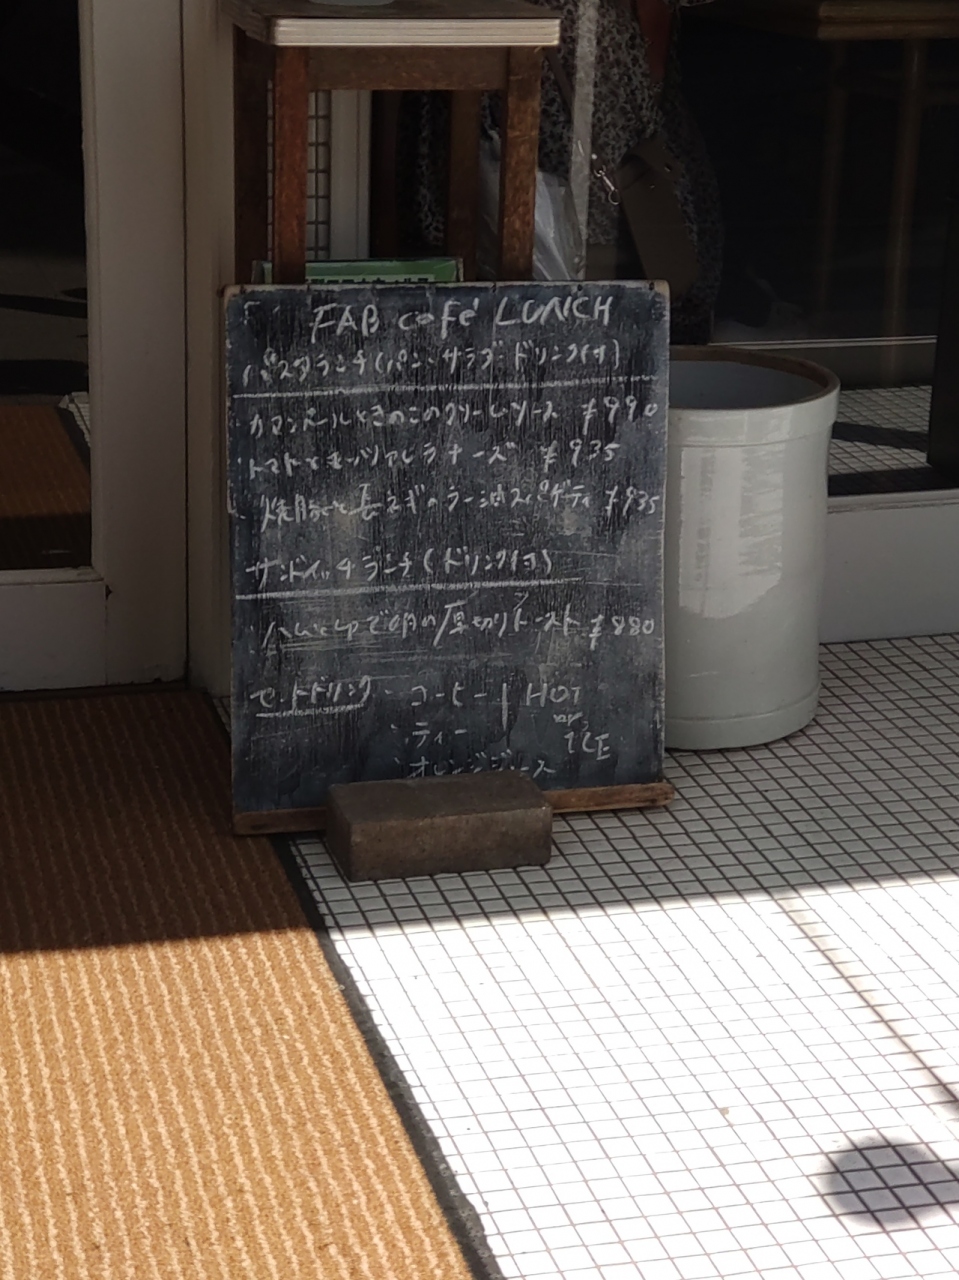 FAB café LUNCH
パスタランチ(パン・サラダ・ドリンク付)
・カマンベールときのこのクリームソース ¥990
・トマトとモッツアレラチーズ ¥935
・焼豚と長ネギのラー油スパゲティ ¥935
サンドイッチランチ(ドリンク付)
・ハムと卵の厚切りトースト ¥880
セットドリンク ・コーヒー HOT
・ティー or ICE
・オレンジジュース